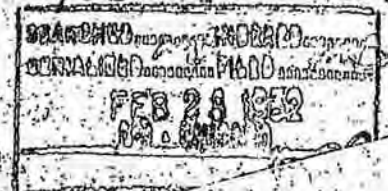 SEARCHED............INDEXED............
SERIALIZED............FILED............
FEB 28 1952